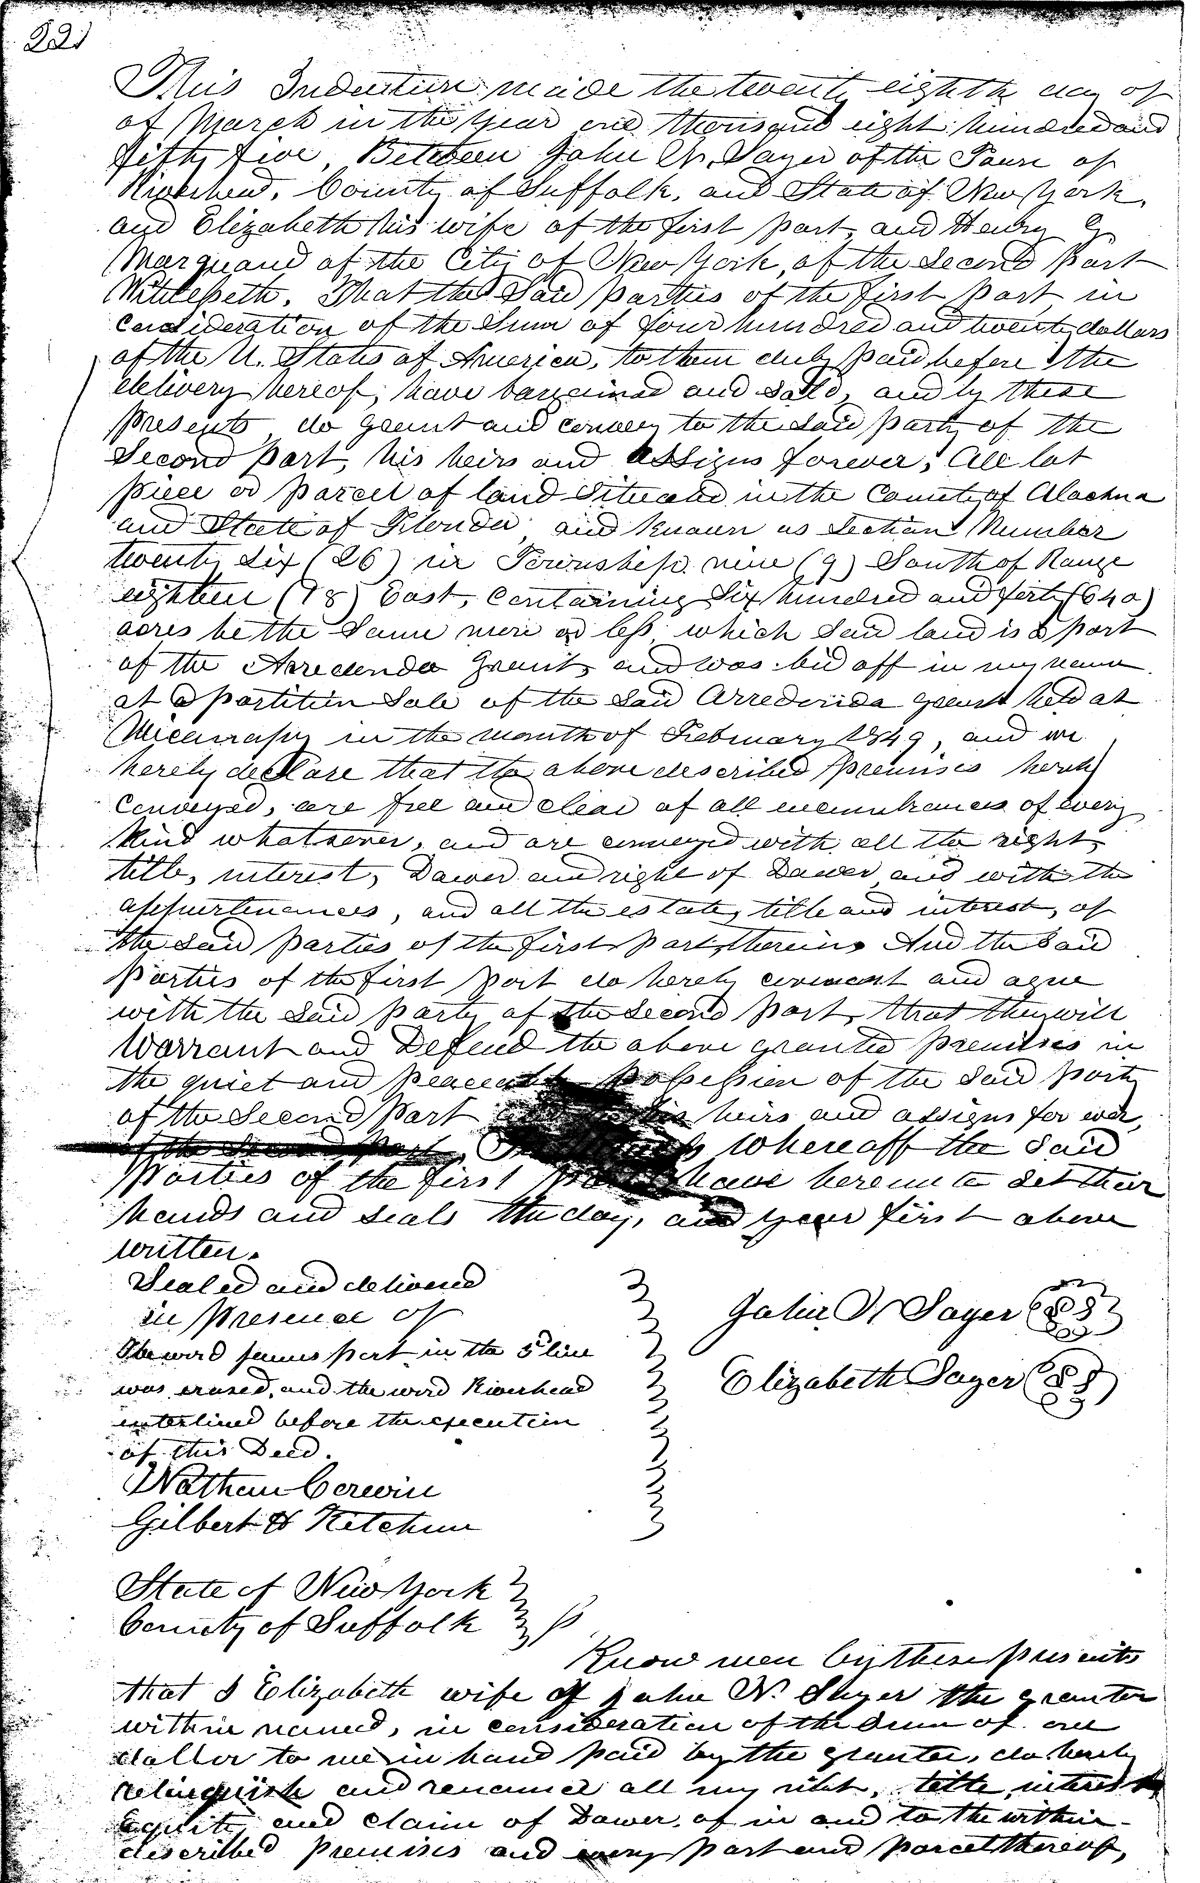 221
This Indenture made the twenty eighth day of
of March in the year one thousand eight hundred and
fifty five, Between John N. Sayer of the Town of
Riverhead, County of Suffolk, and State of New York,
and Elizabeth his wife of the first part, and Henry G
Marquand of the City of New York, of the Second Part
Witnesseth, That the Said parties of the first part in
consideration of the Sum of four hundred and twenty dollars
of the U. States of America, to them duly paid before the
delivery hereof, have bargained and Sold, and by these
presents, do grant and convey to the Said party of the
Second part, his heirs and assigns forever, All lot
piece or parcel of land Situate in the County of Alachua
and State of Florida, and known as Section Number
twenty Six (26) in Township nine (9) South of Range
eighteen (18) East, Containing Six hundred and forty (640)
acres be the Same more or less which Said land is a part
of the Arredondo Grant, and was bid off in my name
at a partition Sale of the Said Arredonda grant held at
Micanopy in the month of February 1849, and we
hereby declare that the above described premises hereby
Conveyed, are free and clear of all encumbrances of every
Kind whatsoever, and are conveyed with all the right,
title, interest, Dower and right of Dower and with the
appurtenances, and all the estate, title and interest, of
the Said parties of the first part, therein, And the Said
parties of the first part do hereby covenant and agree
with the Said party of the Second part, that they will
Warrant and Defend the above granted premises in
the quiet and peaceable possession of the Said party
of the Second part his heirs and assigns for ever,
of the Second part, In Whereoff the Said
Parties of the first part have hereunto Set their
hands and seals the day, and year first above
written.
Sealed and delivered
in presence of
The word part in the 5 line
was erased, and the word Riverhead
interlined before the execution
of this Deed.
Nathan Corwin
Gilbert H Ketchum
John N Sayer
Elizabeth Sayer
State of New York
County of Suffolk
Know men by these presents
that I Elizabeth wife of John N. Sayer the grantor
within named, in consideration of the Sum of one
dollar to me in hand paid by the grantee, do hereby
relinquish and renounce all my right, title, interest
Equity and claim of Dower, of in and to the within
described premises and every part and parcel thereof,